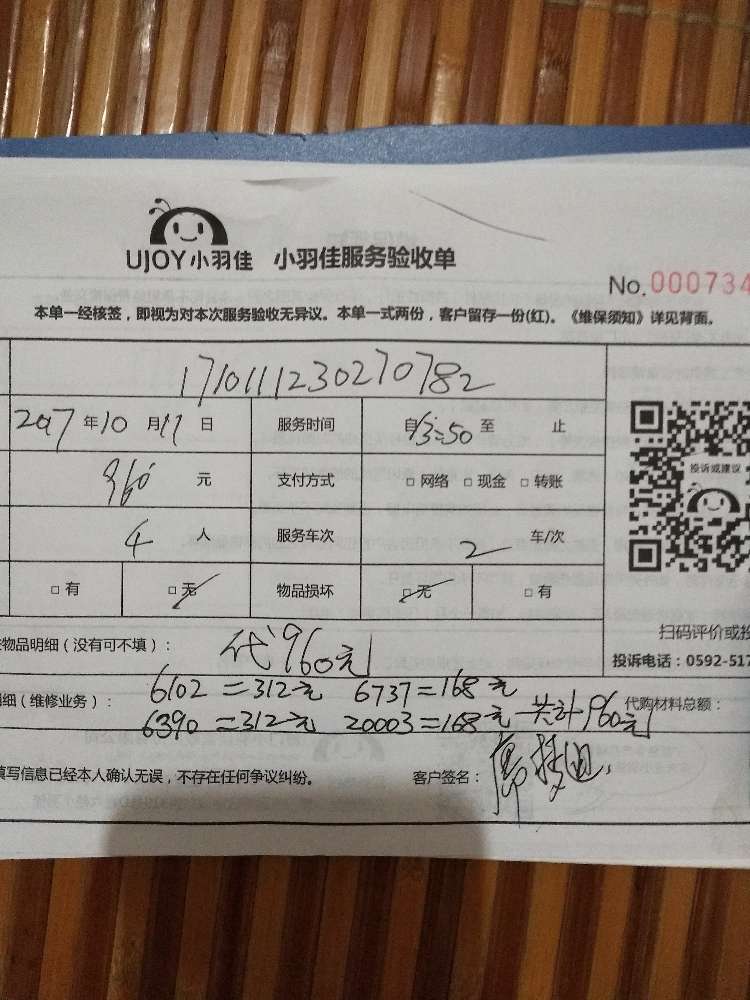 UJOY小羽佳 小羽佳服务验收单
No.000734
本单一经核签，即视为对本次服务验收无异议。本单一式两份，客户留存一份(红)。《维保须知》详见背面。
171011230270782
2017年10月11日 服务时间 自13:50至 止
960元 支付方式 □网络 □现金 □转账
投诉或建议
4人 服务车次 2车/次
□有 □无 物品损坏 □无 □有
扫码评价或投
物品明细（没有可不填）： 代960元
投诉电话：0592-517
明细（维修业务）： 6102=312元 6737=168元
代购材料总额：
6390=312元 20003=168元 共计960元
填写信息已经本人确认无误，不存在任何争议纠纷。 客户签名：